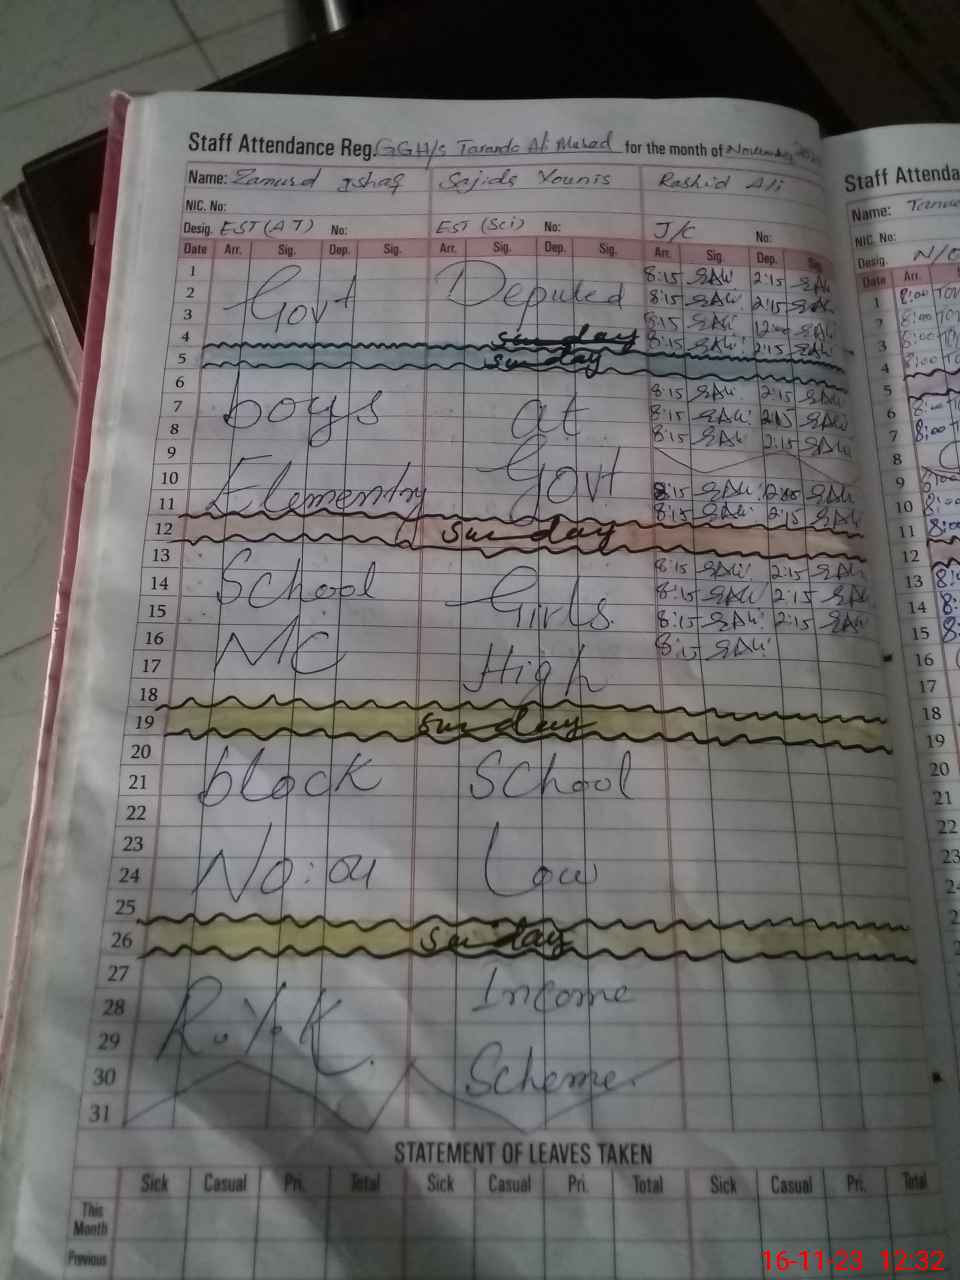 Staff Attendance Reg. GGH/s Taranda Ali Murad for the month of November
Staff Attenda
Name: Zamurd Ishaq Sajida Younis Rashid Ali
Name:
NIC. No:
NIC. No:
Desig. EST (AT) No: EST (Sci) No: J/C No:
Desig. N/Q
Date Arr. Sig. Dep. Sig. Arr. Sig. Dep. Sig. Arr. Sig. Dep. Sig.
Date Arr.
1 8:15 SAli 2:15 SAli
2 Govt Deputed 8:15 SAli 2:15 SAli
3 8:15 SAli 12:00 SAli
4 sunday 8:15 SAli 2:15 SAli
5 sunday
6 8:15 SAli 2:15 SAli
7 boys at 8:15 SAli 2:15 SAli
8 8:15 SAli 2:15 SAli
9 Govt
10 Elementry 8:15 SAli 2:00 SAli
11 8:15 SAli 2:15 SAli
12 sunday
13 8:15 SAli 2:15 SAli
14 School Girls 8:15 SAli 2:15 SAli
15 8:15 SAli 2:15 SAli
16 MC High 8:15 SAli
17
18
19 sunday
20
21 block School
22
23
24 No:04 Low
25
26 sunday
27 Income
28 R.Y.K.
29
30 Scheme.
31
1 8:00
2 8:00
3 8:00
4 8:00
5
6 8:00
7 8:00
8
9
10 8:00
11 8:00
12
13
14
15
16
17
18
19
20
21
22
STATEMENT OF LEAVES TAKEN
Sick Casual Pri. Total Sick Casual Pri. Total Sick Casual Pri. Total
This
Month
Previous
16-11-23 12:32